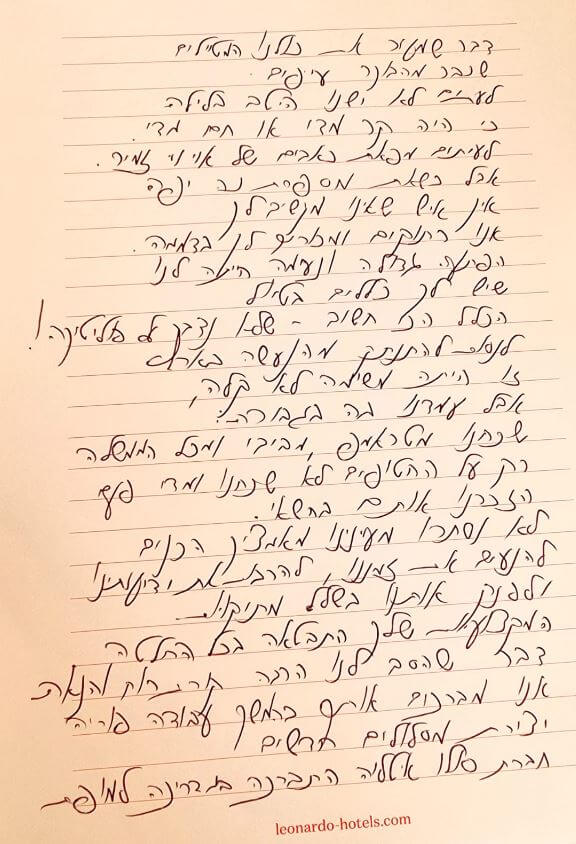 דבר שמטיב את כולנו המטיילים
שכבר מהבוקר עייפים.
לעתים לא ישנו היטב בלילה
כי היה קר מדי או חם מדי.
לעיתים מפאת כאבים של אוי וי זמיר.
אבל כשאת מספרת כה יפה
אין איש שאינו מקשיב לך
אנו רתוקים ומאזינים לך בדממה.
הפתעה גדולה ונעימה חיכתה לנו
שיש לך כללים בטיול
הכלל הכי חשוב - שלא נדבר על פוליטיקה!
לנסות להתנתק מהנעשה בארץ
זו הייתה משימה לא קלה,
אבל עמדנו בה בגבורה!
שכחנו מטראמפ, מביבי ומכל הממשלה
רק על החטופים לא שכחנו ומדי פעם
הזכרנו אותם בחשאי.
לא נסתרו מעינינו מאמציך הכנים
להנעים את זמננו, להרבות את ידיעותינו
ולפנק אותנו בשלל מתיקויות
המקצועיות שלך התבטאה בכל החלטה
דבר שהסב לנו הרבה קורת רוח והנאה
אנו מברכים אותך בהמשך עבודה פוריה
יצירת מסלולים חדשים
חברת סולו איטליה התברכה במדריכה למופת
leonardo-hotels.com